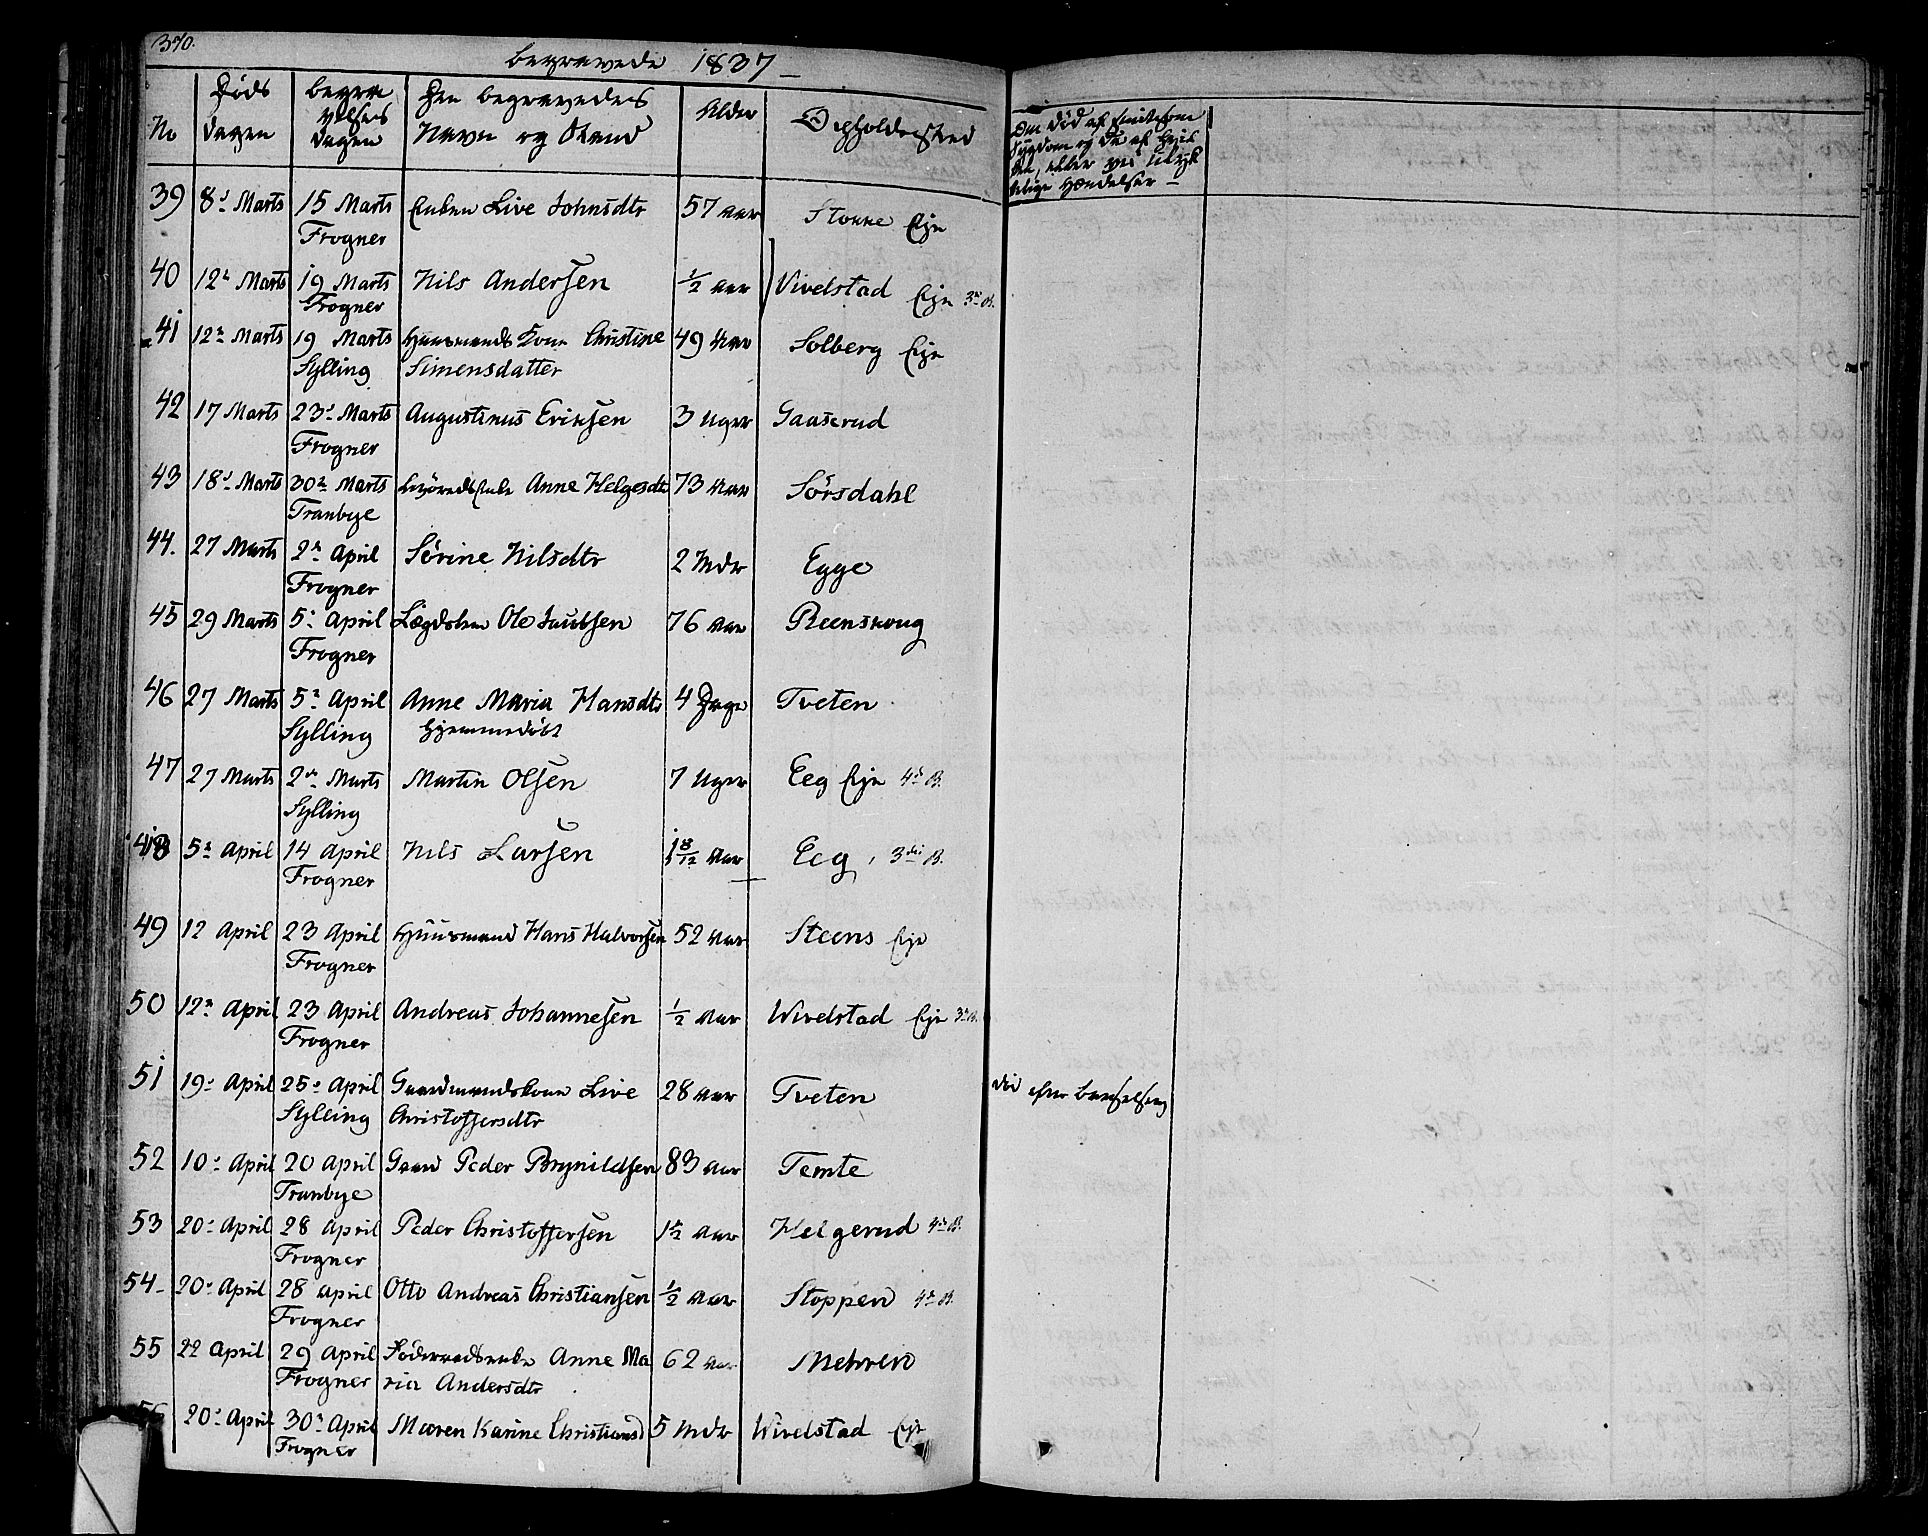 370.
begravede 1837 –
No
Døds
Dagen
begra
velses
Dagen
Den begravedes
Navn og Stand
Alder
Opholdssted
Om død af smitsom
Sygdom og da af hvil
ken, eller ved Ulyk
kelige Hændelser –
39 8de Marts 15 Marts Enken Live Johnsdtr 57 aar Stokke Eje
Frogner
40 12te Marts 19 Marts Nils Andersen 1/2 aar Vivelstad Eje 3de B.
Frogner
41 12te Marts 19 Marts Huusmands Kone Christine 49 Aar Solberg Eje
Sylling Simensdatter
42 17 Marts 23de Marts Augustinus Eriksen 3 Uger Gaaserud
Frogner
43 18de Marts 30te Marts Anne Helgesdtr 73 Aar Sørsdahl
Tranbye
44. 27 Marts 2den April Sørine Nilsdtr 2 Mdr Egge
Frogner
45 29 Marts 5te April Lægdslem Ole 76 Aar Reenskoug
Frogner
46 27 Marts 5te April Anne Maria Hansdtr 4 Dage Tveten
Sylling Hjemmedøbt
47 27 Marts 2den Marts Martin Olsen 7 Uger Eeg Eje 4de B.
Sylling
48 5te April 14 April Nils Larsen 1 8/12 Aar Eeg, 3die B.
Frogner
49 12 April 23 April Huusmand Hans Halvorsen 52 Aar Steens Eje
Frogner
50 12te April 23 April Andreas Johannesen 1/2 Aar Wivelstad Eje 3de B.
Frogner
51 19de April 25de April Gaardmandskone Live 28 aar Tveten død efter Barselseng
Sylling Christoffersdtr
52 10de April 20 April Gaard Peder Brynildsen 83 aar Temte
Tranbye
53 20de April 28 April Peder Christoffersen 1 1/2 aar Helgerud 4de B.
Frogner
54 – 20de April 28 April Otto Andreas Christiansen 1/2 Aar Stoppen 4de B.
Frogner
55 22 April 29 April Føderaadsenke Anne Ma 62 Aar Mehren
Frogner ria Andersdtr
56 20de April 30te April Maren Karine Christiansd 5 Mdr Wivelstad Eje
Frogner